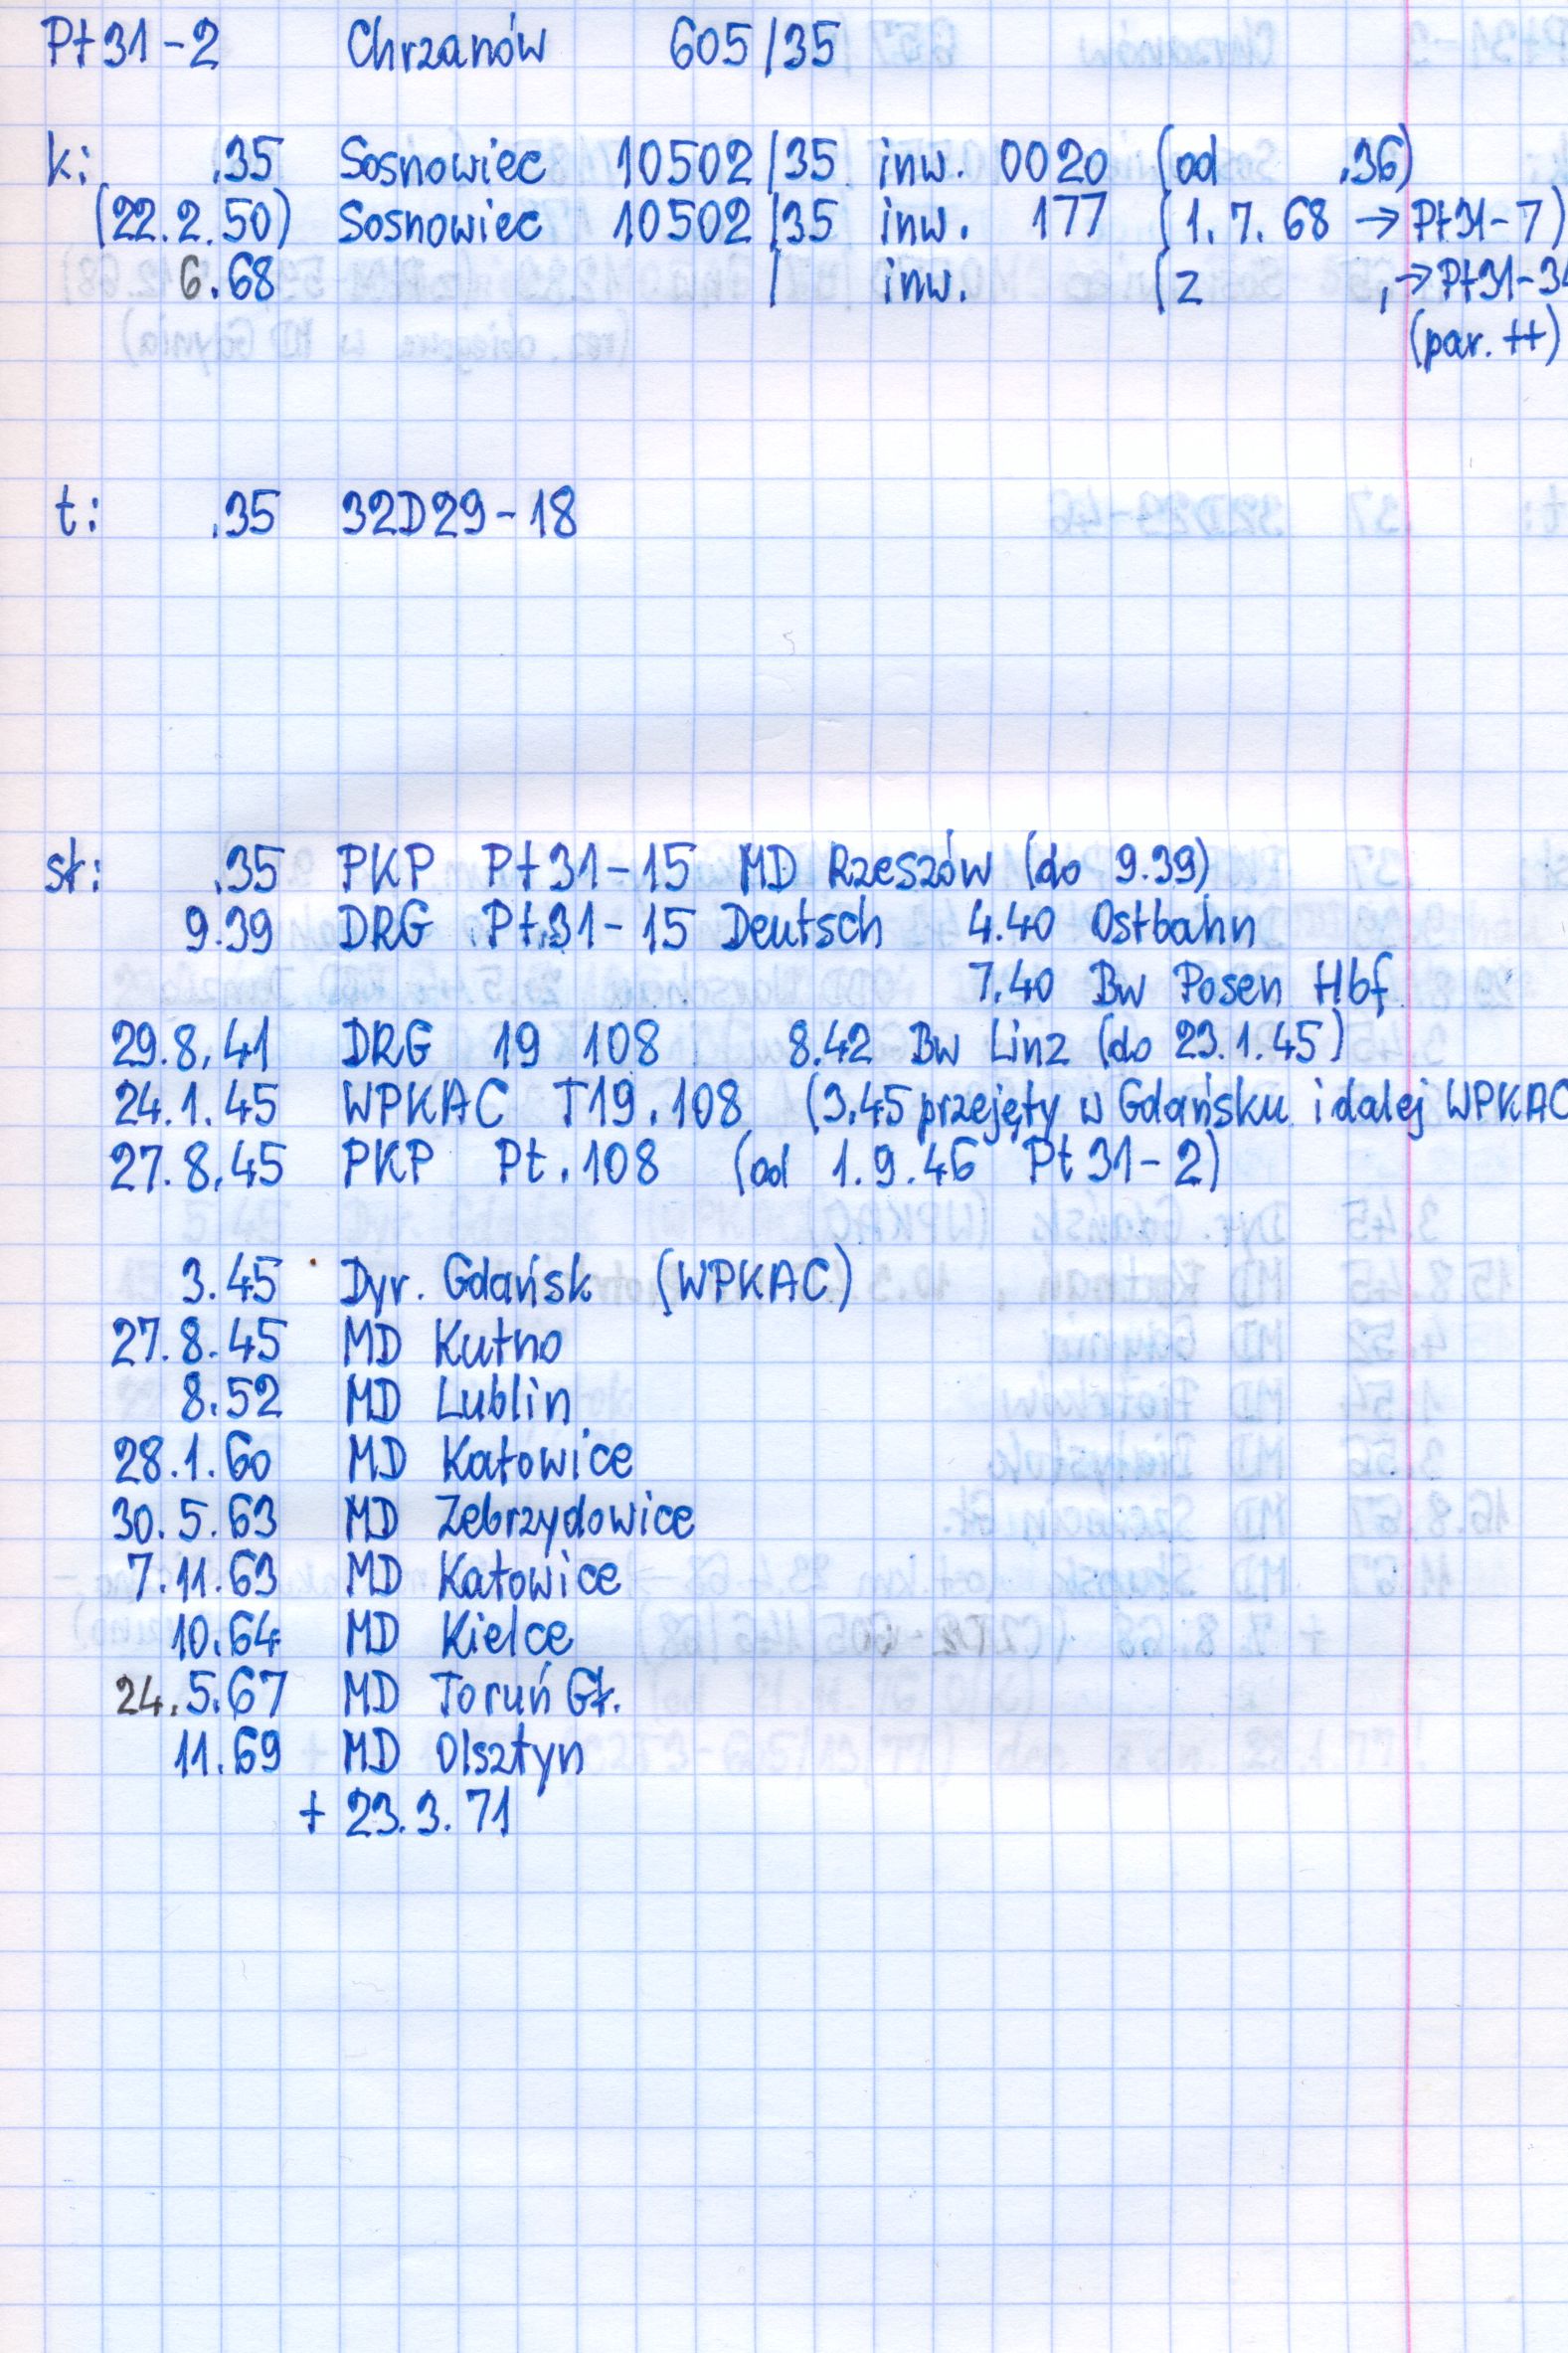 Pt31-2 Chrzanów 605/35
k: .35 Sosnowiec 10502/35 inw. 0020 (od .36)
(22.2.50) Sosnowiec 10502/35 inw. 177 (1.7.68 → Pt31-7)
6.68 / inw. (z , → Pt31-34
(par. ++)
t: .35 32D29-18
sł: .35 PKP Pt31-15 MD Rzeszów (do 9.39)
9.39 DRG Pt31-15 Deutsch 4.40 Ostbahn
7.40 Bw Posen Hbf
29.8.41 DRG 19 108 8.42 Bw Linz (do 23.1.45)
24.1.45 WPKAC T19.108 (3.45 przejęty w Gdańsku i dalej WPKAC
27.8.45 PKP Pt.108 (od 1.9.46 Pt31-2)
3.45 Dyr. Gdańsk (WPKAC)
27.8.45 MD Kutno
8.52 MD Lublin
28.1.60 MD Katowice
30.5.63 MD Zebrzydowice
7.11.63 MD Katowice
10.64 MD Kielce
24.5.67 MD Toruń Gł.
11.69 MD Olsztyn
+ 23.3.71